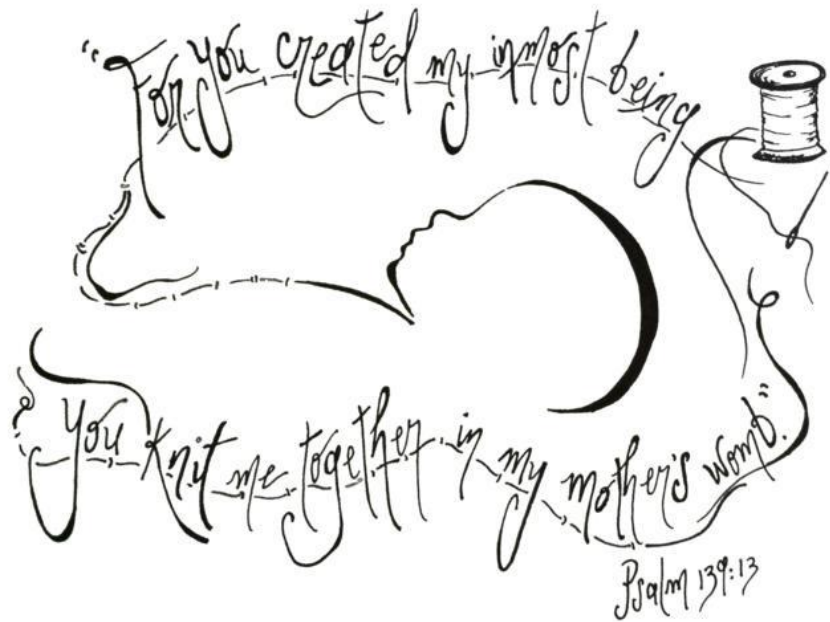 "For you created my inmost being
you knit me together in my mother's womb."
Psalm 139:13